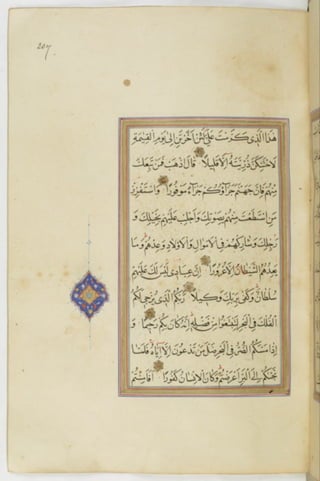 207
هذا الذي كرمت علي لئن اخرتن الى يوم القيمة
لاحتنكن ذريته الا قليلا قال اذهب فمن تبعك
منهم فان جهنم جزاؤكم جزاء موفورا واستفزز
من استطعت منهم بصوتك واجلب عليهم بخيلك و
رجلك وشاركهم في الاموال والاولاد وعدهم وما
يعدهم الشيطان الا غرورا ان عبادي ليس لك عليهم
سلطان وكفى بربك وكيلا ربكم الذي يزجي لكم
الفلك في البحر لتبتغوا من فضله انه كان بكم رحيما و
اذا مسكم الضر في البحر ضل من تدعون الا اياه فلما
نجيكم الى البر اعرضتم وكان الانسان كفورا افامنتم